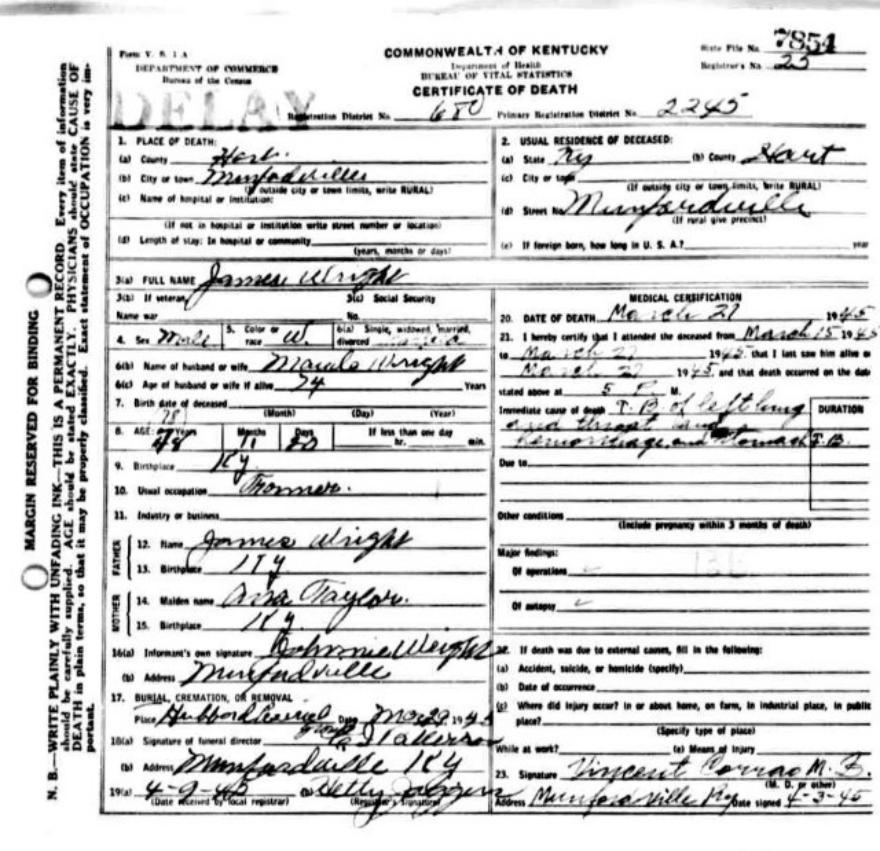 Form V. S. 1 A
DEPARTMENT OF COMMERCE
Bureau of the Census
COMMONWEALTH OF KENTUCKY
Department of Health
BUREAU OF VITAL STATISTICS
CERTIFICATE OF DEATH
State File No. 7854
Registrar's No. 25
DELAY
Registration District No. 680 Primary Registration District No. 2245
MARGIN RESERVED FOR BINDING
N. B.—WRITE PLAINLY WITH UNFADING INK—THIS IS A PERMANENT RECORD. Every item of information
should be carefully supplied. AGE should be stated EXACTLY. PHYSICIANS should state CAUSE OF
DEATH in plain terms, so that it may be properly classified. Exact statement of OCCUPATION is very im-
portant.
1. PLACE OF DEATH:
(a) County Hart
(b) City or town Munfordville
(If outside city or town limits, write RURAL)
(c) Name of hospital or institution:
(If not in hospital or institution write street number or location)
(d) Length of stay: In hospital or community
(years, months or days)
2. USUAL RESIDENCE OF DECEASED:
(a) State Ky (b) County Hart
(c) City or town
(If outside city or town limits, write RURAL)
(d) Street No. Munfordville
(If rural give precinct)
(e) If foreign born, how long in U. S. A.? year
3(a) FULL NAME James Wright
3(b) If veteran, 3(c) Social Security
Name war No.
4. Sex Male 5. Color or race W. 6(a) Single, widowed, married, divorced
6(b) Name of husband or wife Wright
6(c) Age of husband or wife if alive 74 Years
7. Birth date of deceased
(Month) (Day) (Year)
8. AGE: Years Months Days If less than one day
78 11 hr. min.
9. Birthplace Ky
10. Usual occupation Farmer.
11. Industry or business
FATHER
12. Name James Wright
13. Birthplace Ky
MOTHER
14. Maiden name Taylor.
15. Birthplace Ky.
16(a) Informant's own signature Johnnie Wright
(b) Address Munfordville
17. BURIAL, CREMATION, OR REMOVAL
Place Date Mar 29 1945
18(a) Signature of funeral director
(b) Address Munfordville Ky
19(a) 4-9-45 (b)
(Date received by local registrar) (Registrar's signature)
MEDICAL CERTIFICATION
20. DATE OF DEATH March 27 1945
21. I hereby certify that I attended the deceased from March 15 1945
to March 27 1945 that I last saw him alive on
March 27 1945 and that death occurred on the date
stated above at 5 P. M.
Immediate cause of death T. B. of left lung DURATION
and throat and
hemorrhage, and stomach T. B.
Due to
Other conditions
(Include pregnancy within 3 months of death)
Major findings:
Of operations
Of autopsy
22. If death was due to external causes, fill in the following:
(a) Accident, suicide, or homicide (specify)
(b) Date of occurrence
(c) Where did injury occur? In or about home, on farm, in industrial place, in public
place?
(Specify type of place)
While at work? (e) Means of Injury
23. Signature Vincent Corrao M. D.
(M. D. or other)
Address Munfordville Ky Date signed 4-3-45